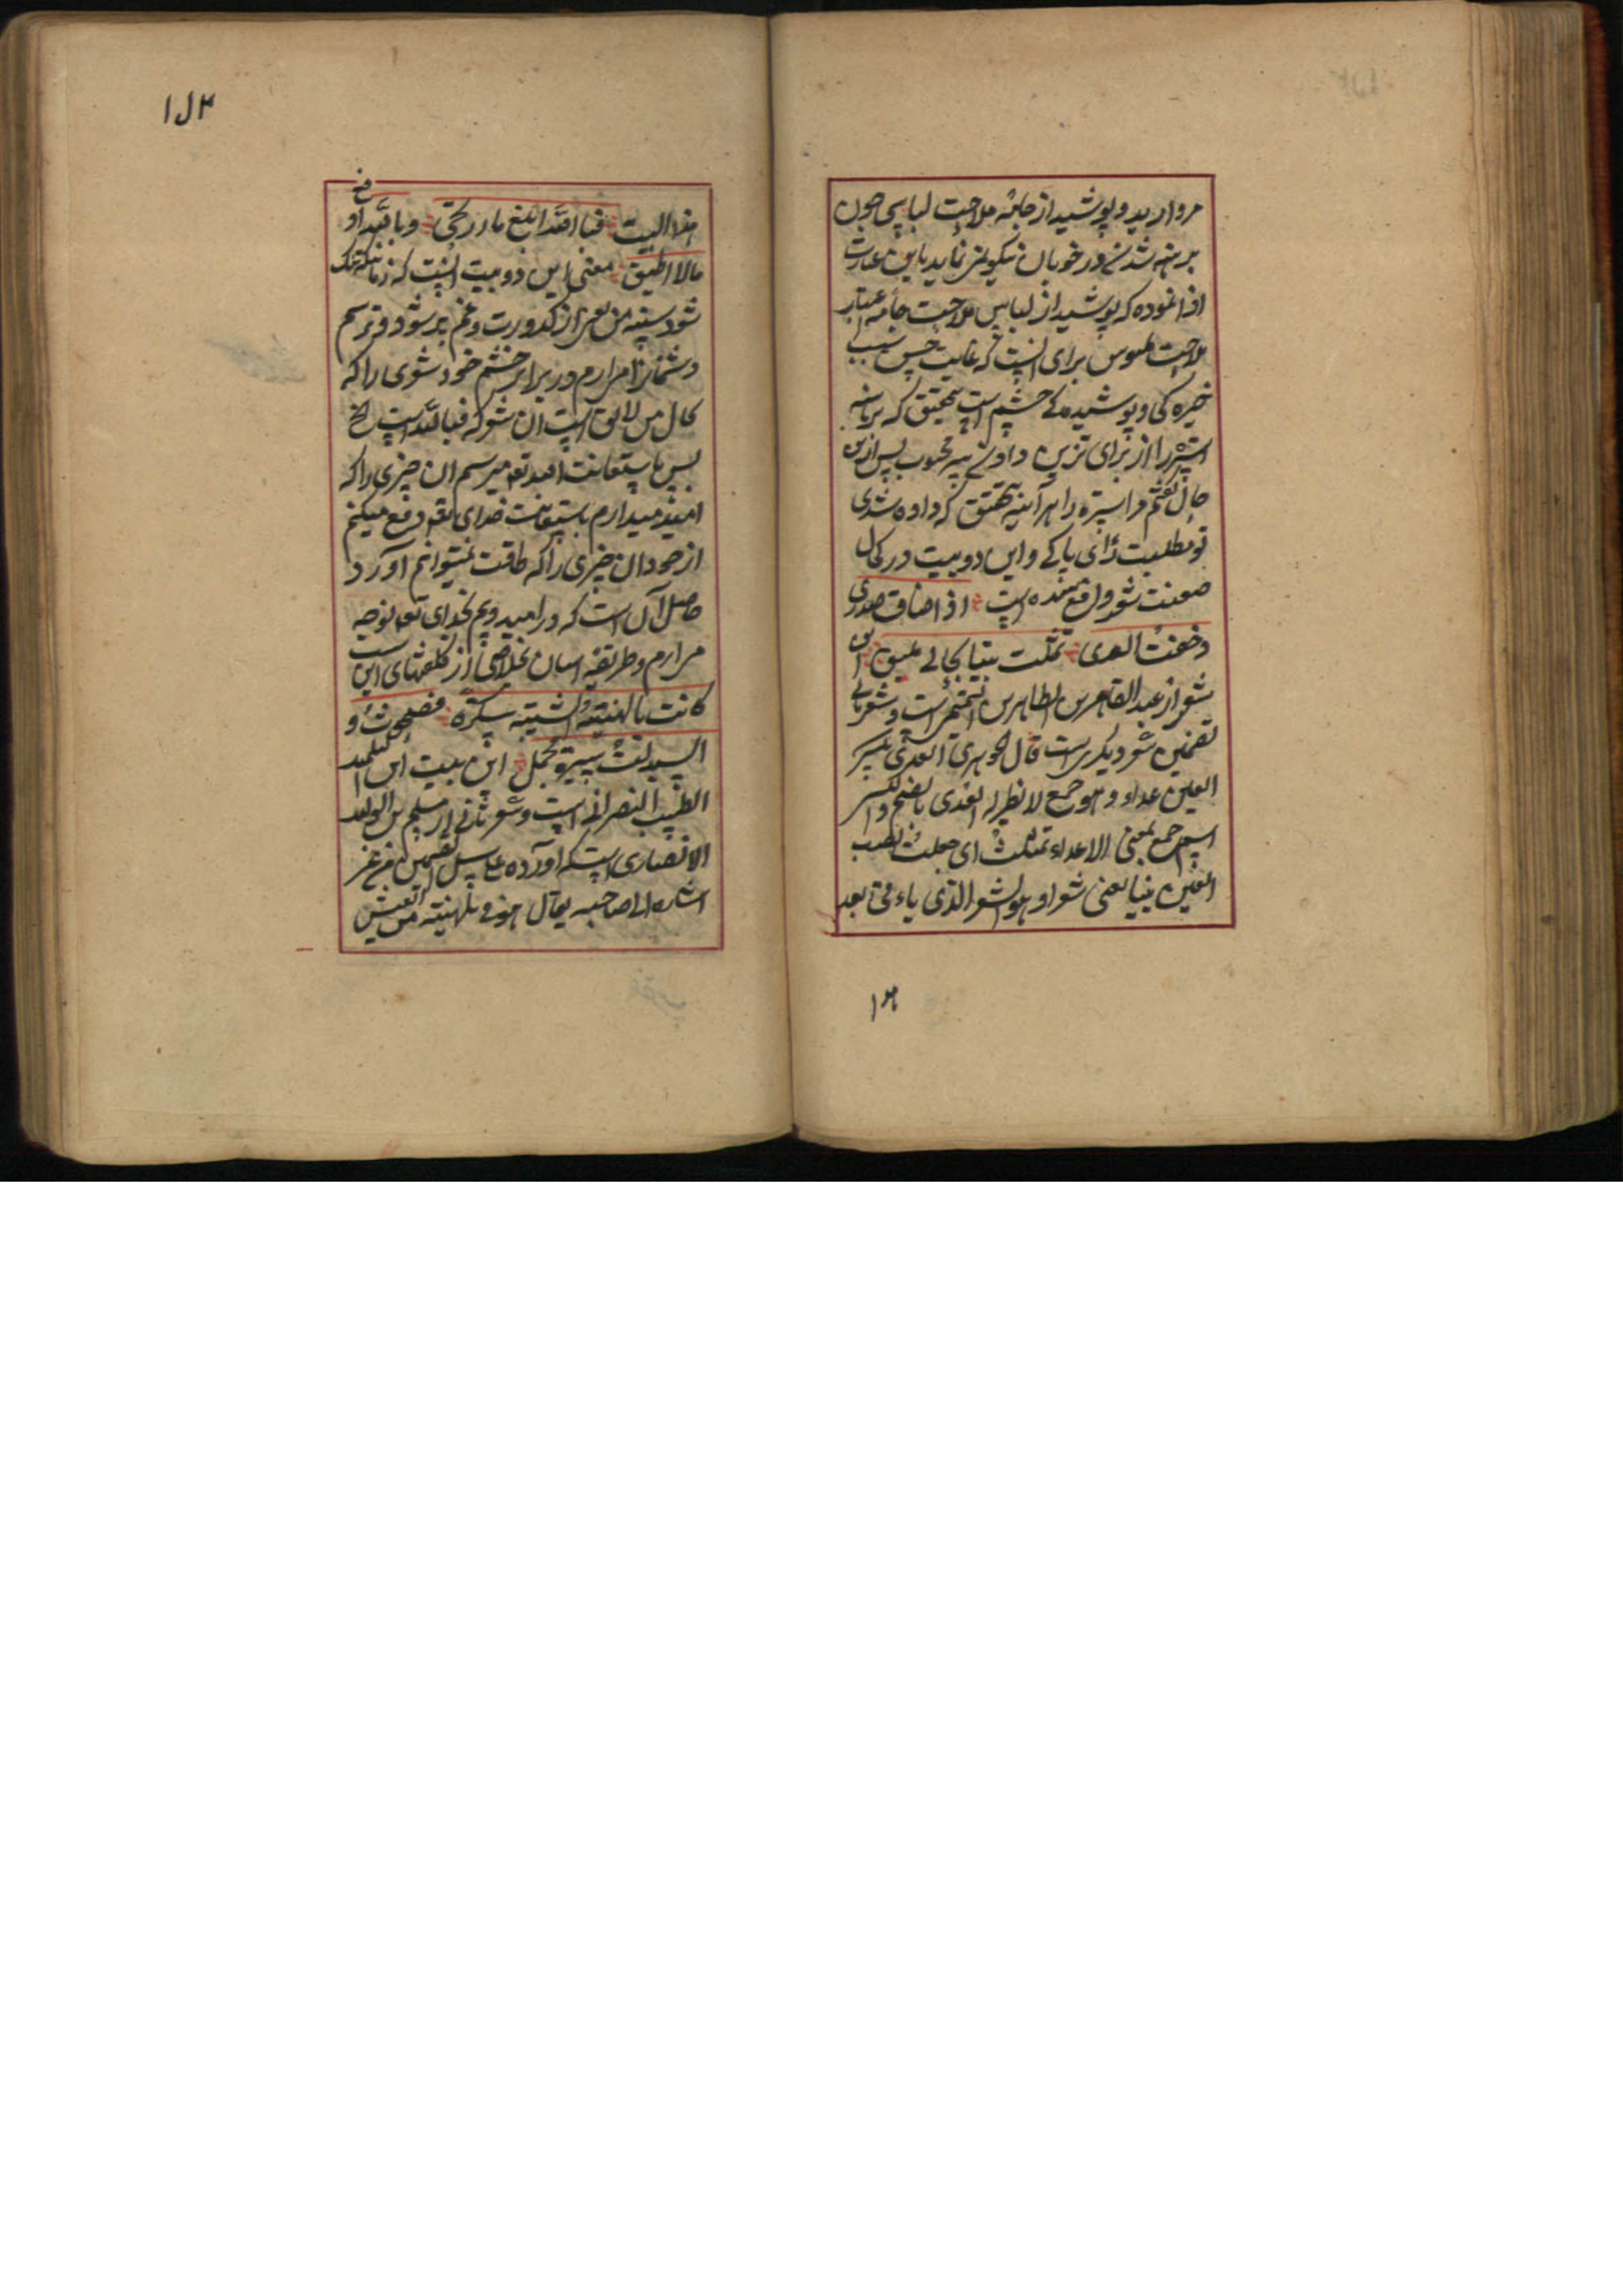 مروارید و پوشید از جامه ملاحت لباسی چون
برهنه شدنے در خوبان نیکوتر نماید باین عبارت
ادا نموده که پوشید از لباس ملاحت جامه
ملاحت ملبوس برای اینست که غایت حسن سبب
خیره کی و پوشیده کے چشم است بتحقیق که برهنه
استره را از برای تزین دادنے سر محبوب پس ازین
حال گفتم مر استره را هر آئینه بتحقیق که داده شدی
تو مطلبت رای پاکے و این دو بیت در کمال
صنعت شعر واقع شده است اذا ضاق صدری
وخفت العدی تمثلت بیتا بحالے یلیق این
شعر از عبد القاهر بن الطاهر بن التمیمی است و شعر ثانی
تضمین شعر دیگر است قال الجوهری العدی بکسر
العین عداء وهو جمع لا نظیر له العدی بالضم والکسر
اسم جمع بمعنی الاعداء تمثلت ای جعلت نصب
العین بیتا یعنی شعرا وهو الشعر الذی یاءتی بعد
۱۲
هذا البیت فبالله ابلغ ما ارتجی وبالله ادفع
مالا اطیق معنی این دو بیت اینست که زمانیکه تنک
شود سینه من یعنی از کدورت و غم پر شود و ترسم
دشمنانرا مرارم در برابر چشم خود شعری را که
بحال من لایق است آن شعر که فبالله است الخ
پس باستعانت میرسم ان چیزی را که
امید میدارم باستعانت خدای تعه دفع میکنم
از خود ان چیزی را که طاقت نمیتوانم آورد
حاصل آن است که در امید و بیم بخدای تعه توجه
مرارم و طریقه اسان بخلاصی از کلفتهای این است
کانت بلهنیة الشبیبة سکرة فصحوت و
السیرة مجمل این بیت ابن التلمید
الطبیب النصرانے است و شعر ثانے از مسلم بن الولید
الانصاری است که اورده علے سبیل التضمین من غیر
اشاره الے صاحبه یقال هو فی بلهنیة من العیش